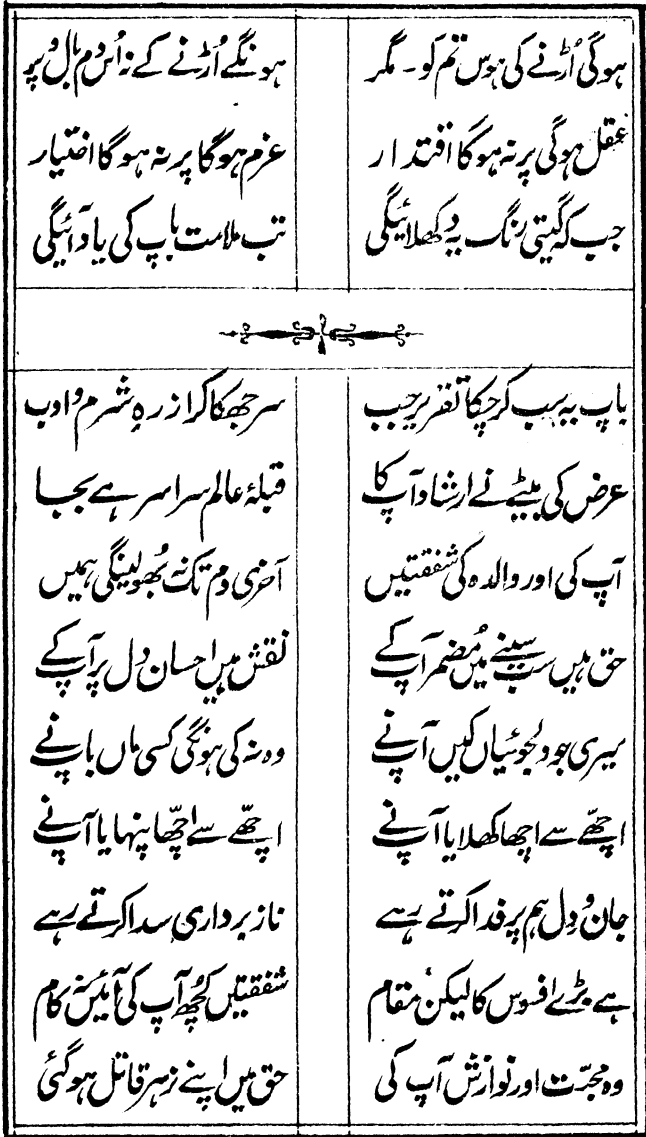 ہوگی اُڑنے کی ہوس تم کو۔ مگر ہونگے اُڑنے کے نہ اُس دم بال و پر
عقل ہوگی پر نہ ہوگا اقتدار عزم ہوگا پر نہ ہوگا اختیار
جب کہ گیتی رنگ یہ دکھلائیگی تب ملامت باپ کی یاد آئیگی
باپ یہ سب کرچکا تقریر جب سرجھکا کر از رہِ شرم و ادب
عرض کی بیٹے نے ارشاد آپ کا قبلۂ عالم سراسر ہے بجا
آپ کی اور والدہ کی شفقتیں آخری دم تک نہ بھولینگی ہمیں
حق ہیں سب سینے میں مُضمر آپ کے نقش ہیں احسان دل پر آپ کے
میری جو دلجوئیاں کیں آپ نے وہ نہ کی ہونگی کسی ماں باپ نے
اچھّے سے اچھا کھلایا آپ نے اچھّے سے اچھّا پنہایا آپ نے
جان و دِل ہم پر فدا کرتے رہے ناز برداری سدا کرتے رہے
ہے بڑے افسوس کا لیکن مقام شفقتیں کُچھ آپ کی آئیں نہ کام
وہ محبّت اور نوازش آپ کی حق میں اپنے زہر قاتل ہوگئی